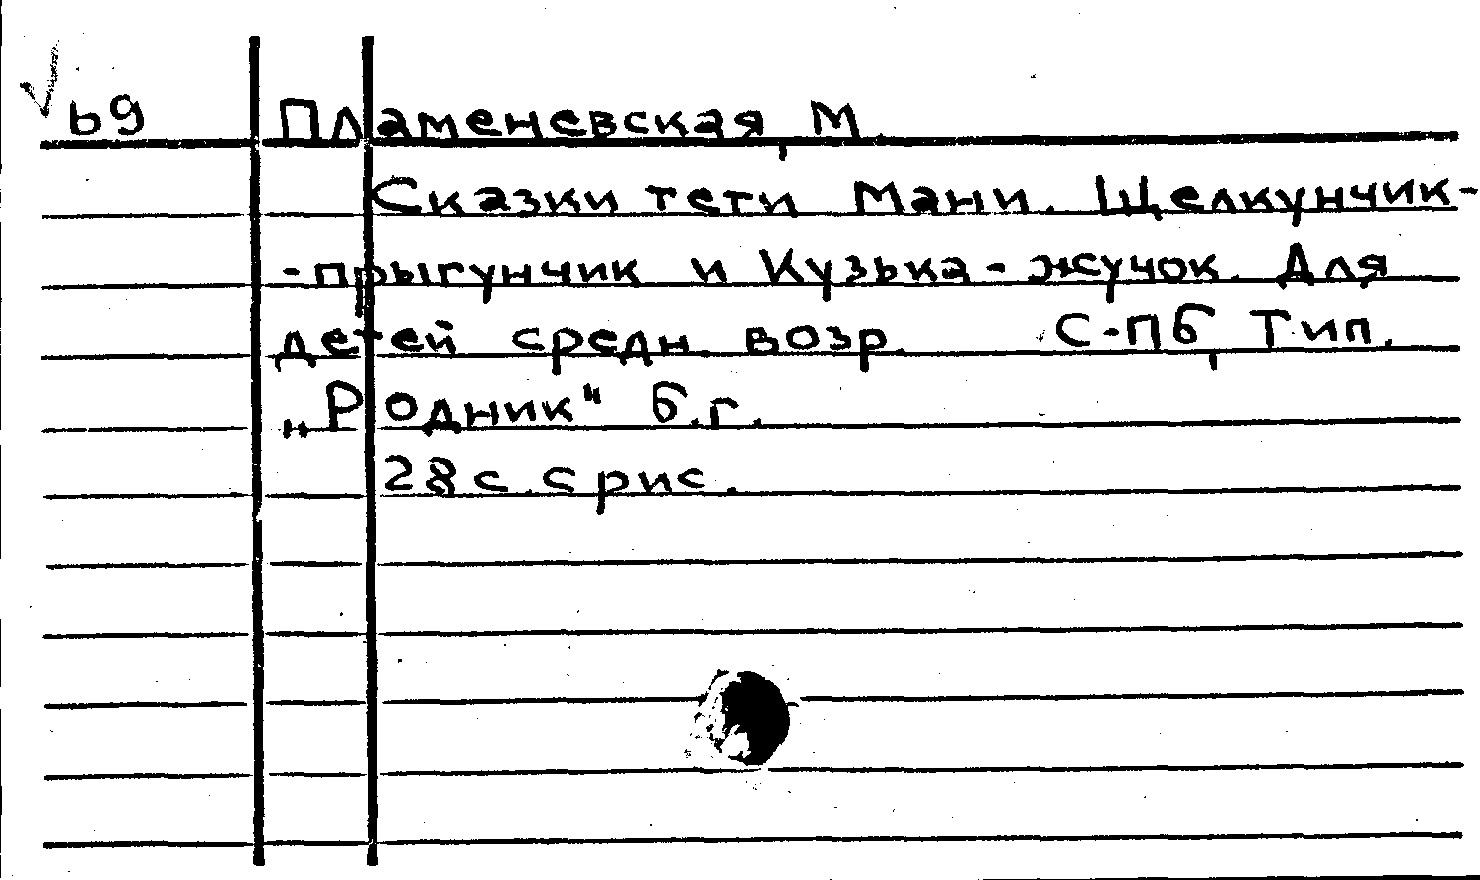 б9 Пламеневская, М.
Сказки тети Мани. Щелкунчик-
-прыгунчик и Кузька-жучок. Для
детей средн. возр. С-Пб, Тип.
„Родник“ б.г.
28 с. с рис.